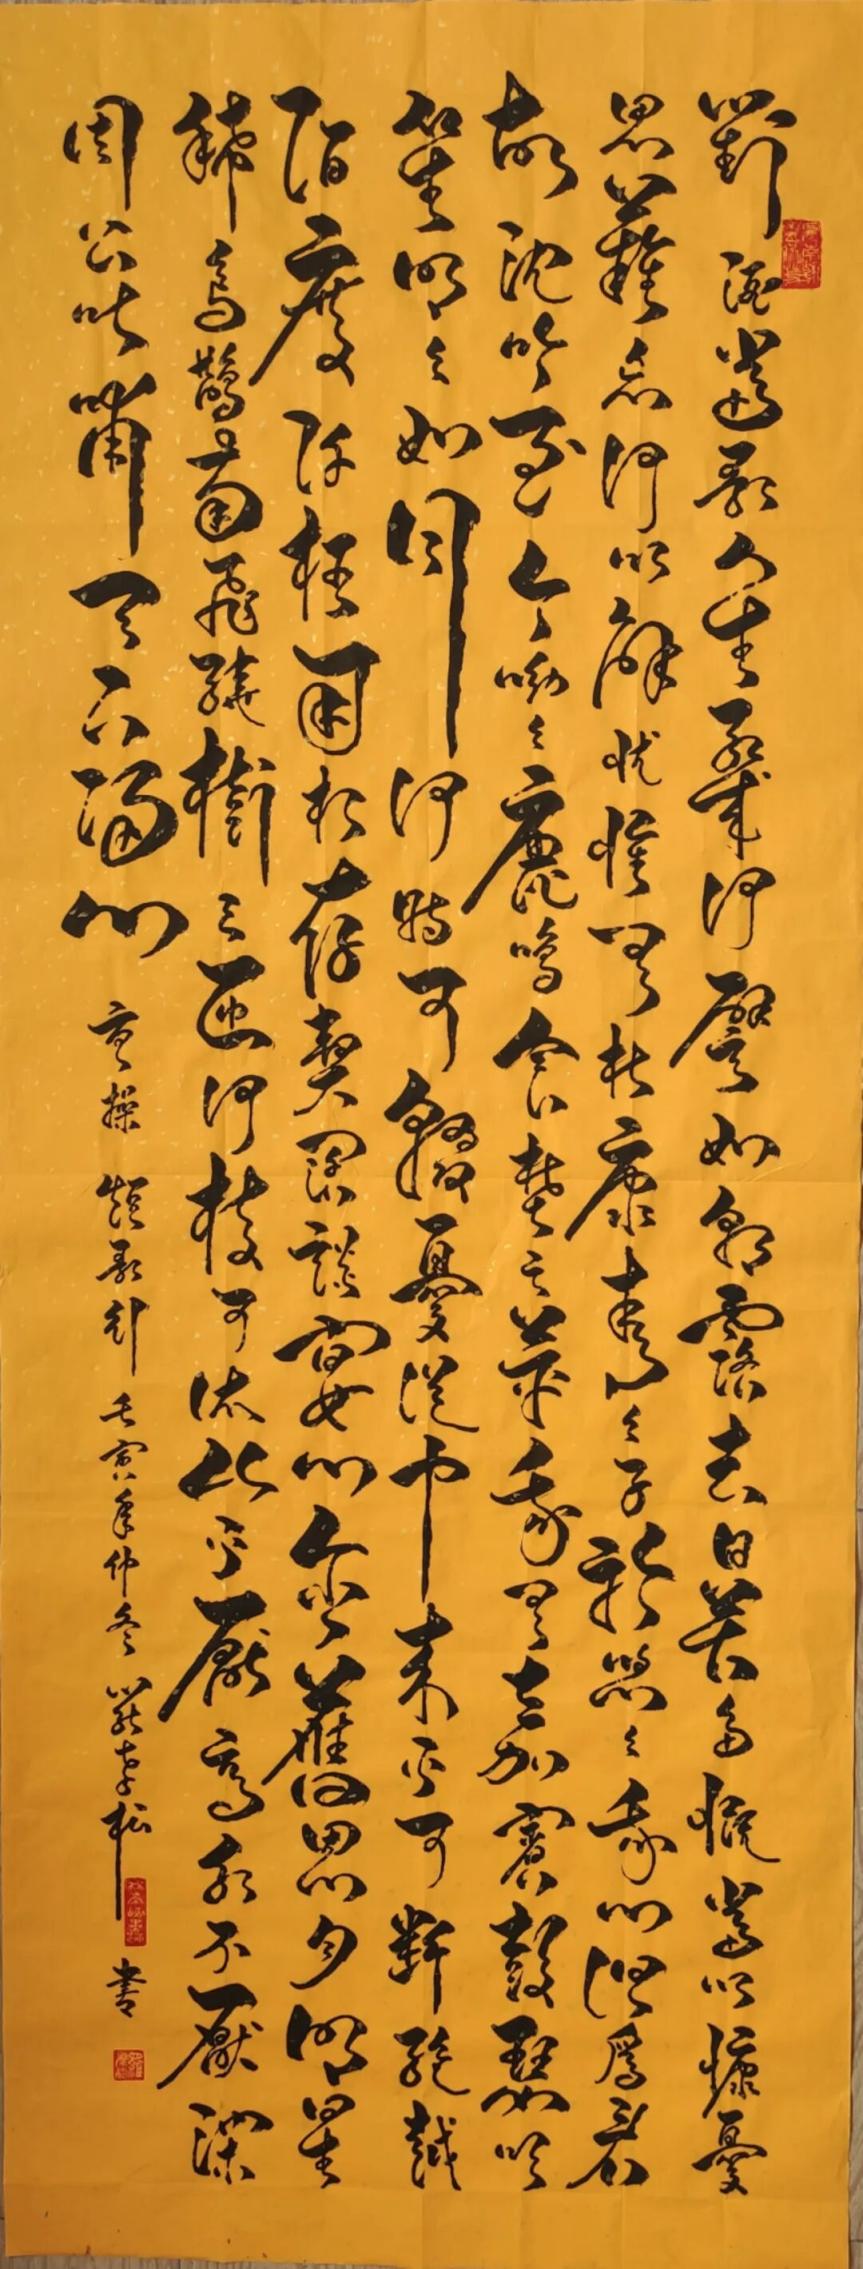 對酒當歌人生幾何譬如朝露去日苦多慨當以慷憂
思難忘何以解忧惟有杜康青々子衿悠々我心但為君
故沈吟至今呦々鹿鳴食野之苹我有嘉賓鼓瑟吹
笙明々如月何時可掇憂從中來不可斷絕越
陌度阡枉用相存契闊談宴心念舊恩月明星
稀烏鵲南飛繞樹三匝何枝可依山不厭高水不厭深
周公吐哺天下歸心 曹操 短歌行 壬寅年仲冬 羅孝松 書